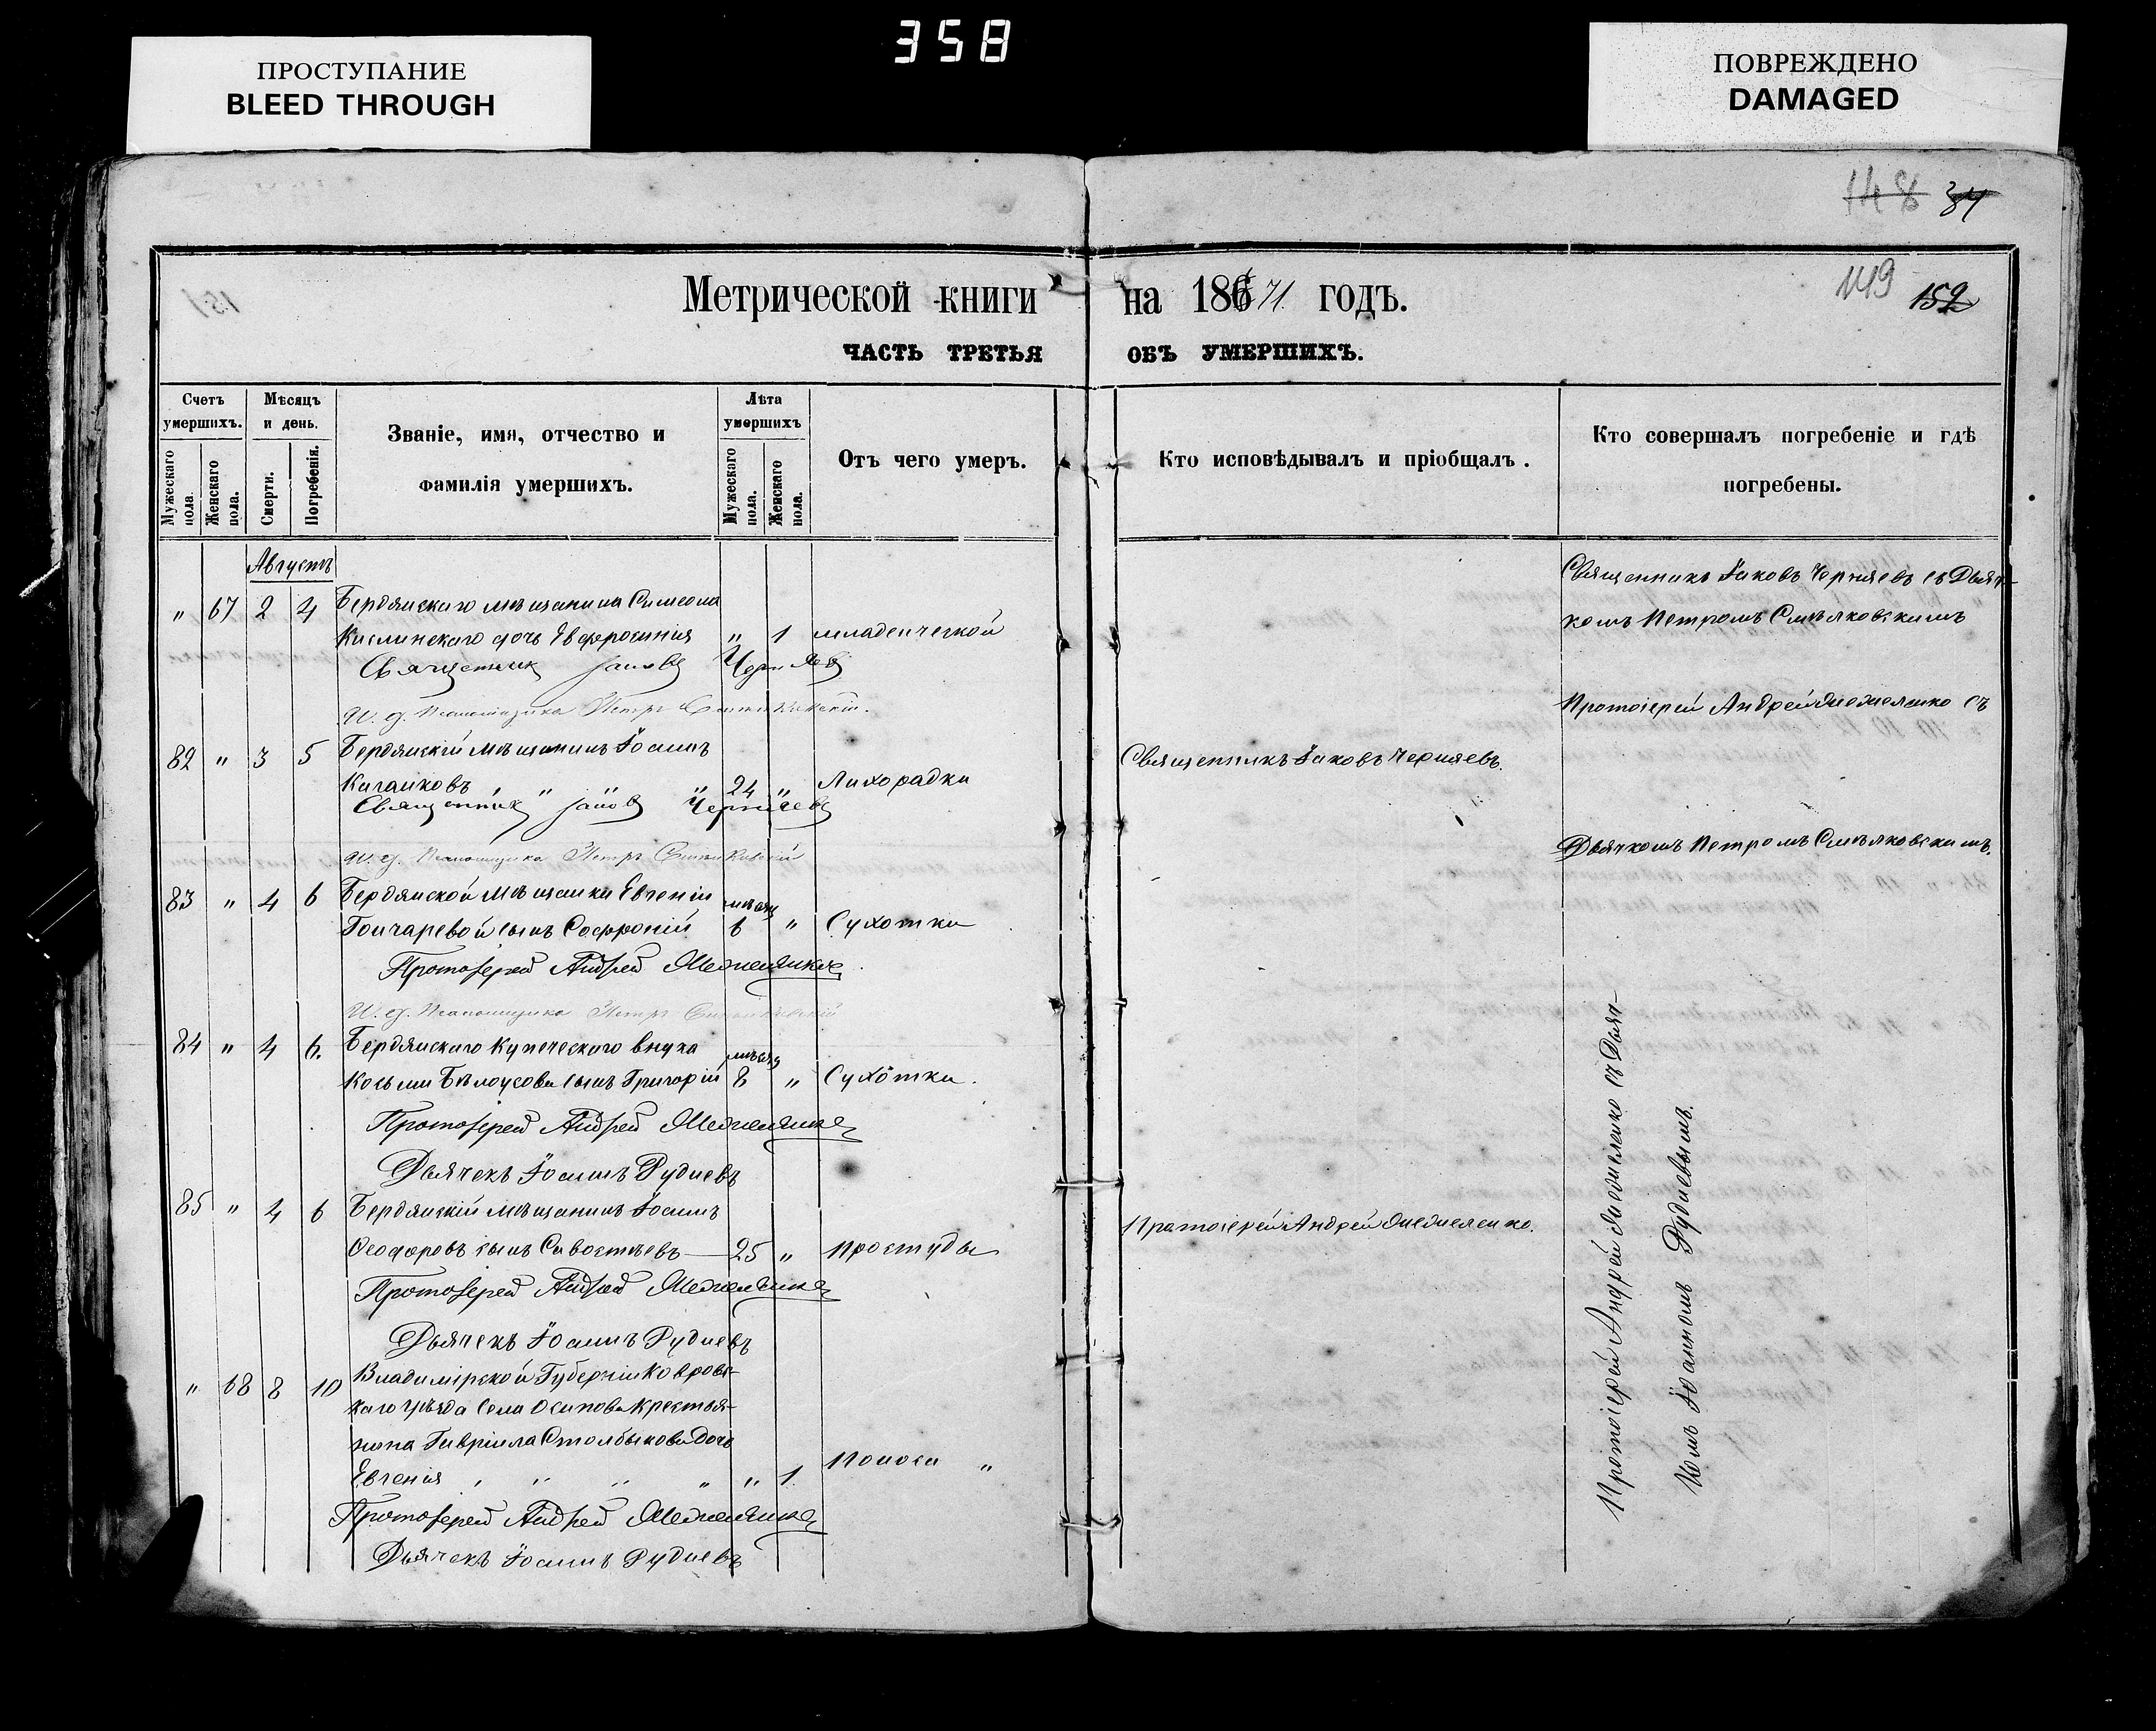 ПРОСТУПАНИЕ
BLEED THROUGH
358
ПОВРЕЖДЕНО
DAMAGED
148 34
Метрической книги на 18671 годъ.
149 152
ЧАСТЬ ТРЕТЬЯ ОБЪ УМЕРШИХЪ.
Счетъ умершихъ.
Мужескаго пола.
Женскаго пола.
Мѣсяцъ и день.
Смерти.
Погребенія.
Званіе, имя, отчество и
фамилія умершихъ.
Лѣта умершихъ
Мужескаго пола.
Женскаго пола.
Отъ чего умеръ.
Кто исповѣдывалъ и пріобщалъ.
Кто совершалъ погребеніе и гдѣ
погребены.
Августъ
" 67 2 4 Бердянскаго мѣщанина Симеона
дочь Евфросинія " 1 младенческой
Священник Іаковъ Черняевъ
И. д. Псаломщика Петръ
Священникъ Іаковъ Черняевъ съ Дьяч-
комъ Петромъ
82 " 3 5 Бердянскій мѣщанинъ Іоаннъ
" " 24 " Лихорадки
Священникъ Іаковъ Черняевъ
И. д. Псаломщика Петръ
Священникъ Іаковъ Черняевъ.
Протоіерей Андрей съ
Дьячкомъ Петромъ
83 " 4 6 Бердянской мѣщанки Евгеніи мѣсяц
Гончаревой сынъ Софроній 6 " Сухотки
Протоіерей Андрей
И. д. Псаломщика Петръ
84 " 4 6. Бердянскаго купеческаго внука мѣсяц
Косьмы Бѣлоусова сынъ Григорій 8 " Сухотки.
Протоіерей Андрей
Дьячекъ Іоаннъ Рудневъ
85 " 4 6 Бердянскій мѣщанинъ Іоаннъ
Ѳеодоровъ сынъ 25 " Простуды
Протоіерей Андрей
Дьячекъ Іоаннъ Рудневъ
Протоіерей Андрей
" 68 8 10 Владимірской Губерніи Ковровс-
каго уѣзда села Осипова крестья-
нина Гавріила Столбыкова дочь
Евгенія " " " " " 1. Поноса "
Протоіерей Андрей
Дьячекъ Іоаннъ Рудневъ
Протоіерей Андрей съ Дьяч-
комъ Іоанномъ Рудневымъ.